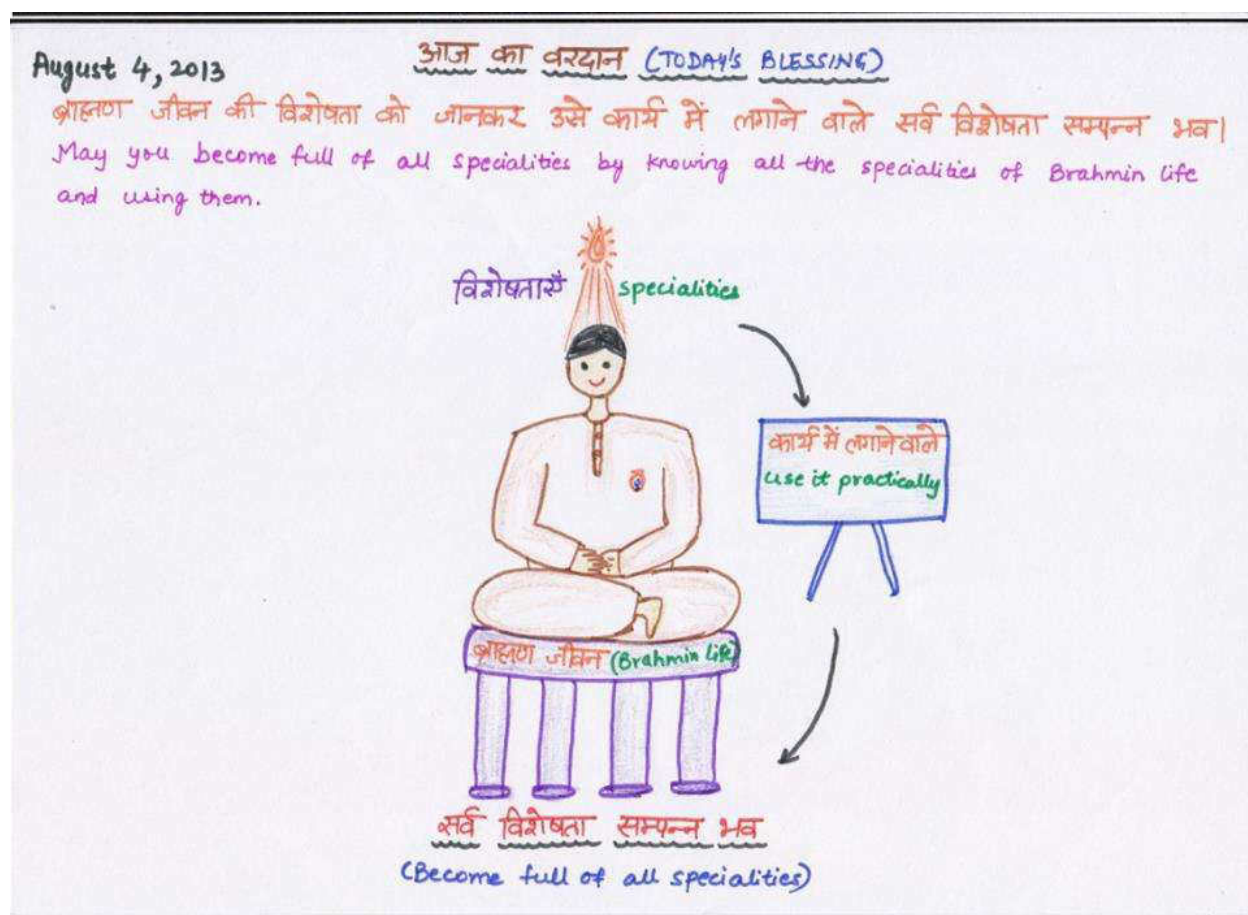 August 4, 2013
आज का वरदान (TODAY'S BLESSING)
ब्राह्मण जीवन की विशेषता को जानकर उसे कार्य में लगाने वाले सर्व विशेषता सम्पन्न भव।
May you become full of all specialities by knowing all the specialities of Brahmin life
and using them.
विशेषताएँ specialities
कार्य में लगाने वाले
use it practically
ब्राह्मण जीवन (Brahmin life)
सर्व विशेषता सम्पन्न भव
(Become full of all specialities)